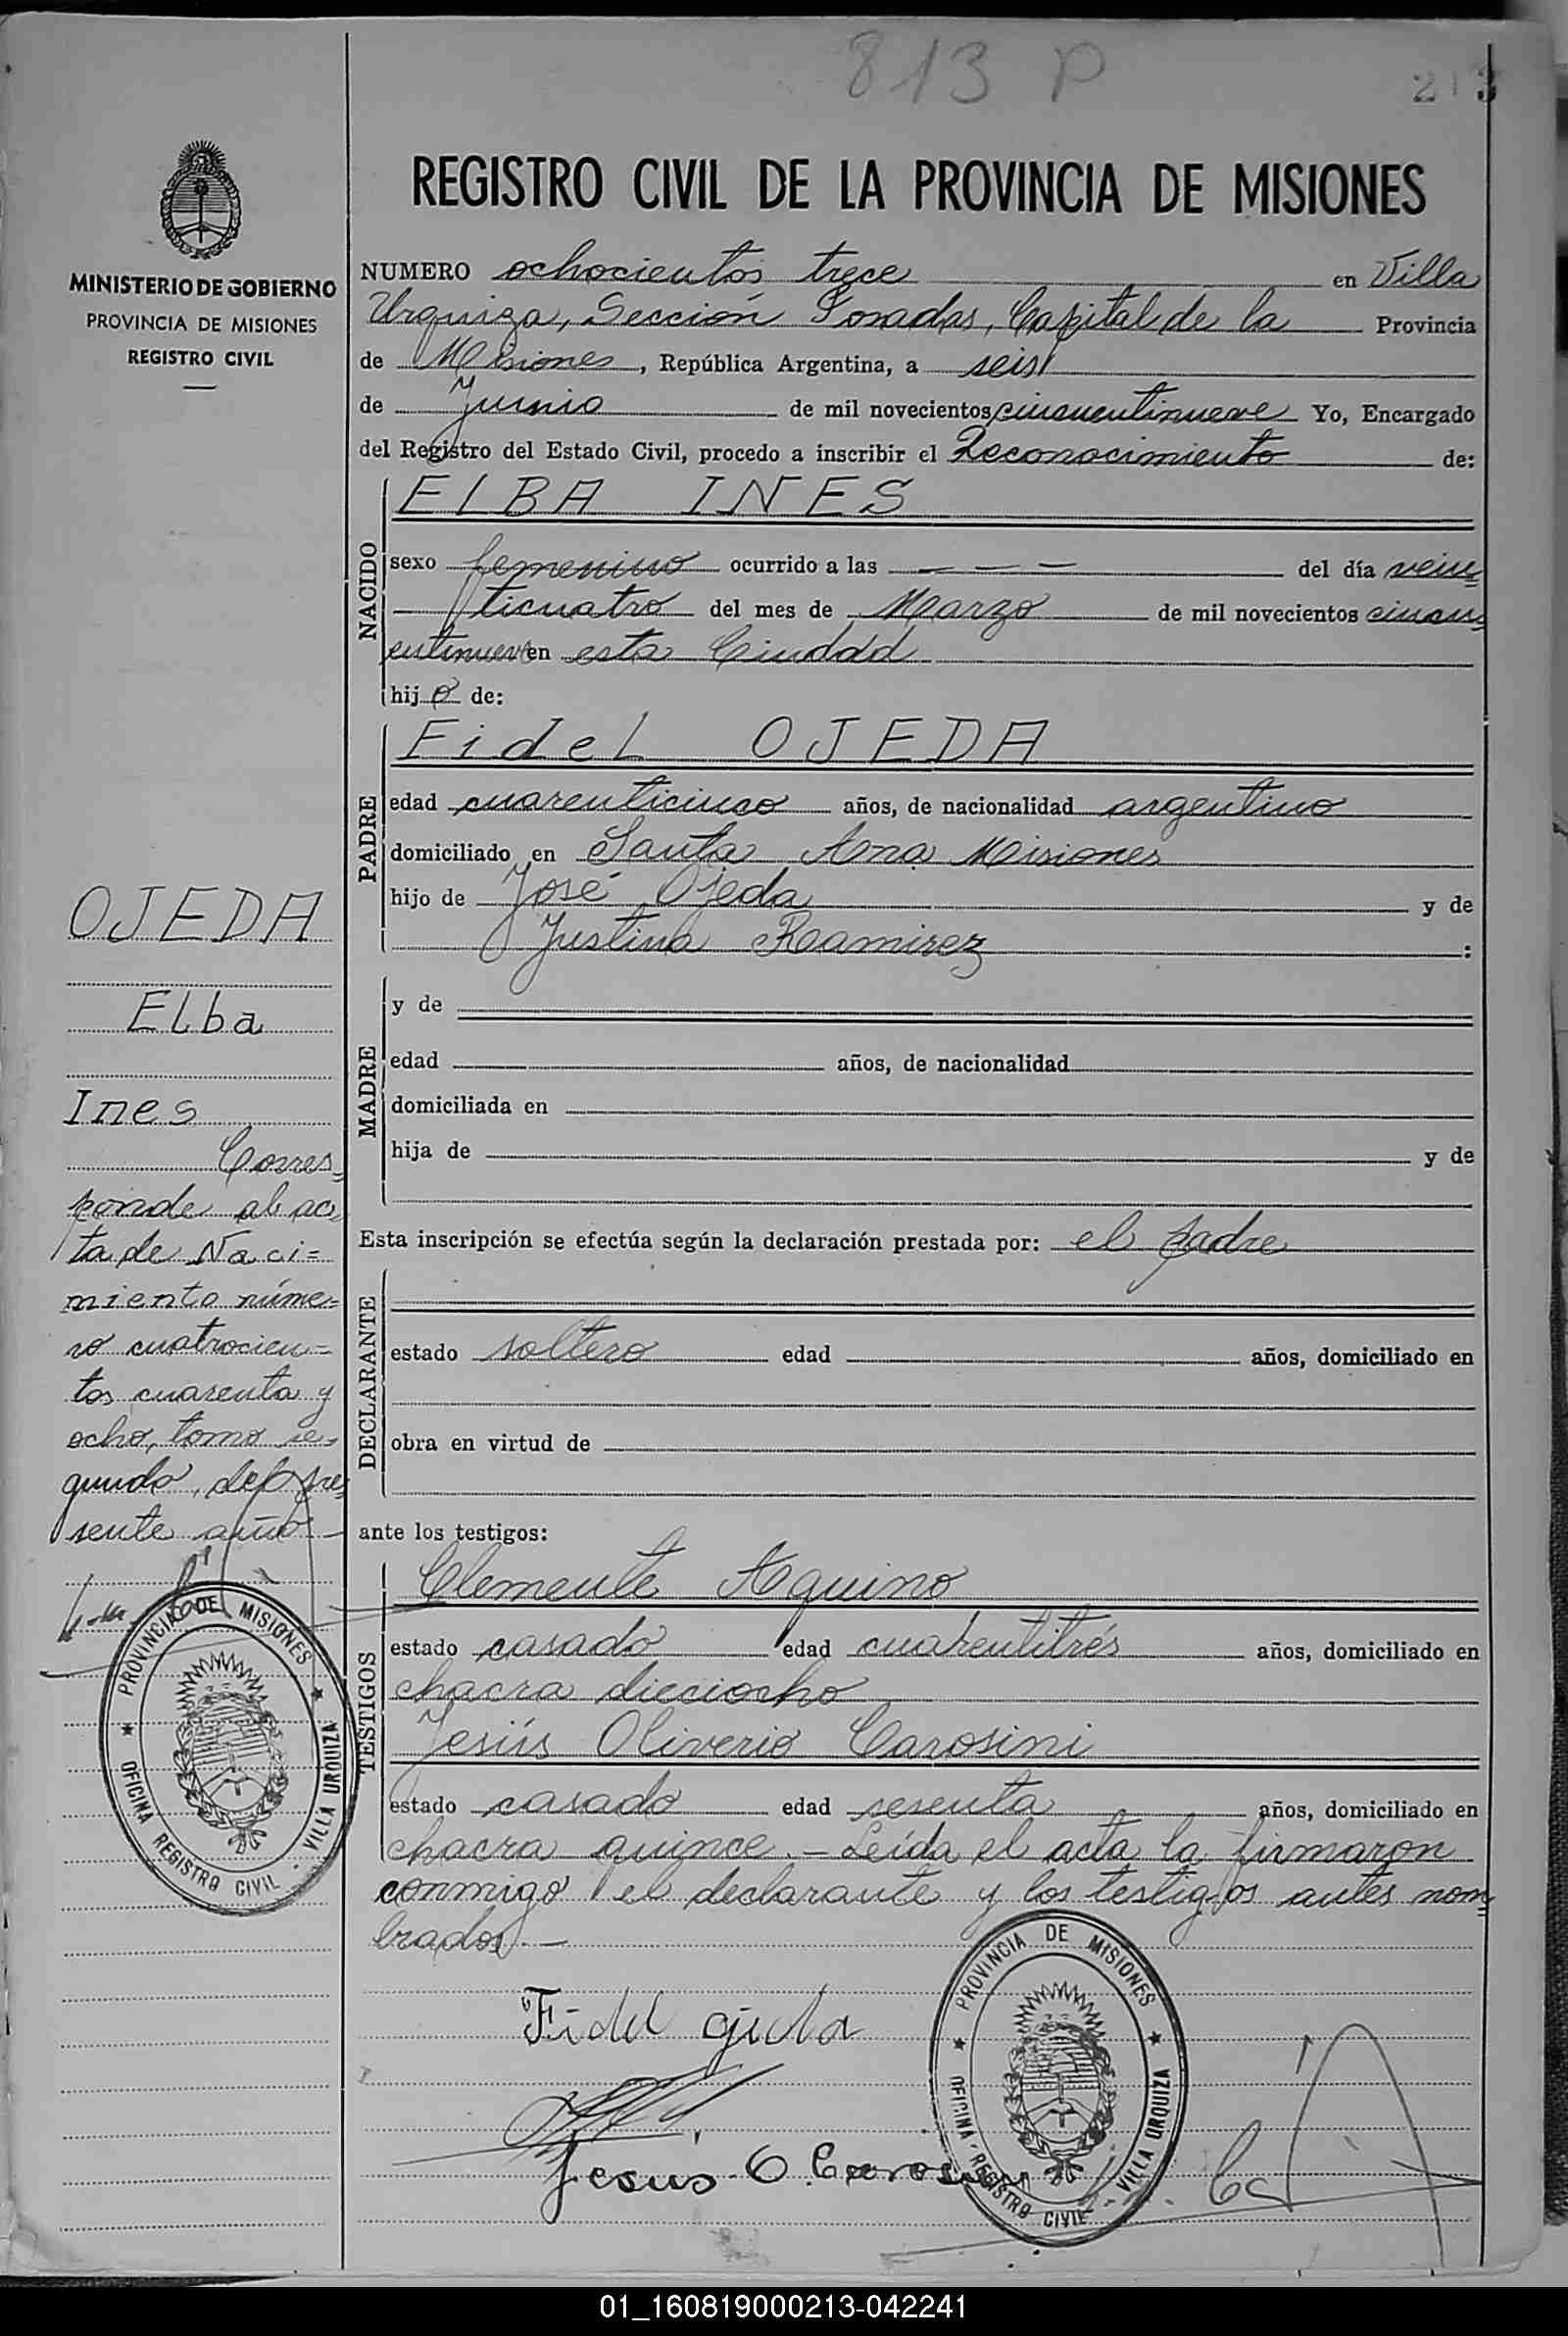 813 P
213
MINISTERIO DE GOBIERNO
PROVINCIA DE MISIONES
REGISTRO CIVIL
REGISTRO CIVIL DE LA PROVINCIA DE MISIONES
NUMERO ochocientos trece en Villa
Urquiza, Sección Posadas, Capital de la Provincia
de Misiones, República Argentina, a seis
de Junio de mil novecientos cincuentinueve Yo, Encargado
del Registro del Estado Civil, procedo a inscribir el Reconocimiento de:
NACIDO
ELBA INES
sexo femenino ocurrido a las — — — del día vein=
ticuatro del mes de Marzo de mil novecientos cincu=
entinueve en esta Ciudad
hij a de:
PADRE
Fidel OJEDA
edad cuarenticinco años, de nacionalidad argentino
domiciliado en Santa Ana Misiones
hijo de José Ojeda y de
Justina Ramirez :
MADRE
y de
edad años, de nacionalidad
domiciliada en
hija de y de
Esta inscripción se efectúa según la declaración prestada por: el padre
DECLARANTE
estado soltero edad años, domiciliado en
obra en virtud de
ante los testigos:
TESTIGOS
Clemente Aquino
estado casado edad cuarentitrés años, domiciliado en
chacra dieciocho
Jesús Oliverio Carosini
estado casado edad sesenta años, domiciliado en
chacra quince.— Leída el acta la firmaron
conmigo el declarante y los testigos antes nom=
brados.—
Fidel ojeda
Jesus O Carosini
PROVINCIA DE MISIONES
OFICINA REGISTRO CIVIL - VILLA URQUIZA
OJEDA
Elba
Ines
Corres=
ponde al ac=
ta de Naci=
miento núme=
ro cuatrocien=
tos cuarenta y
ocho, tomo se=
gundo, del pre=
sente año—
PROVINCIA DE MISIONES
OFICINA REGISTRO CIVIL - VILLA URQUIZA
01_160819000213-042241